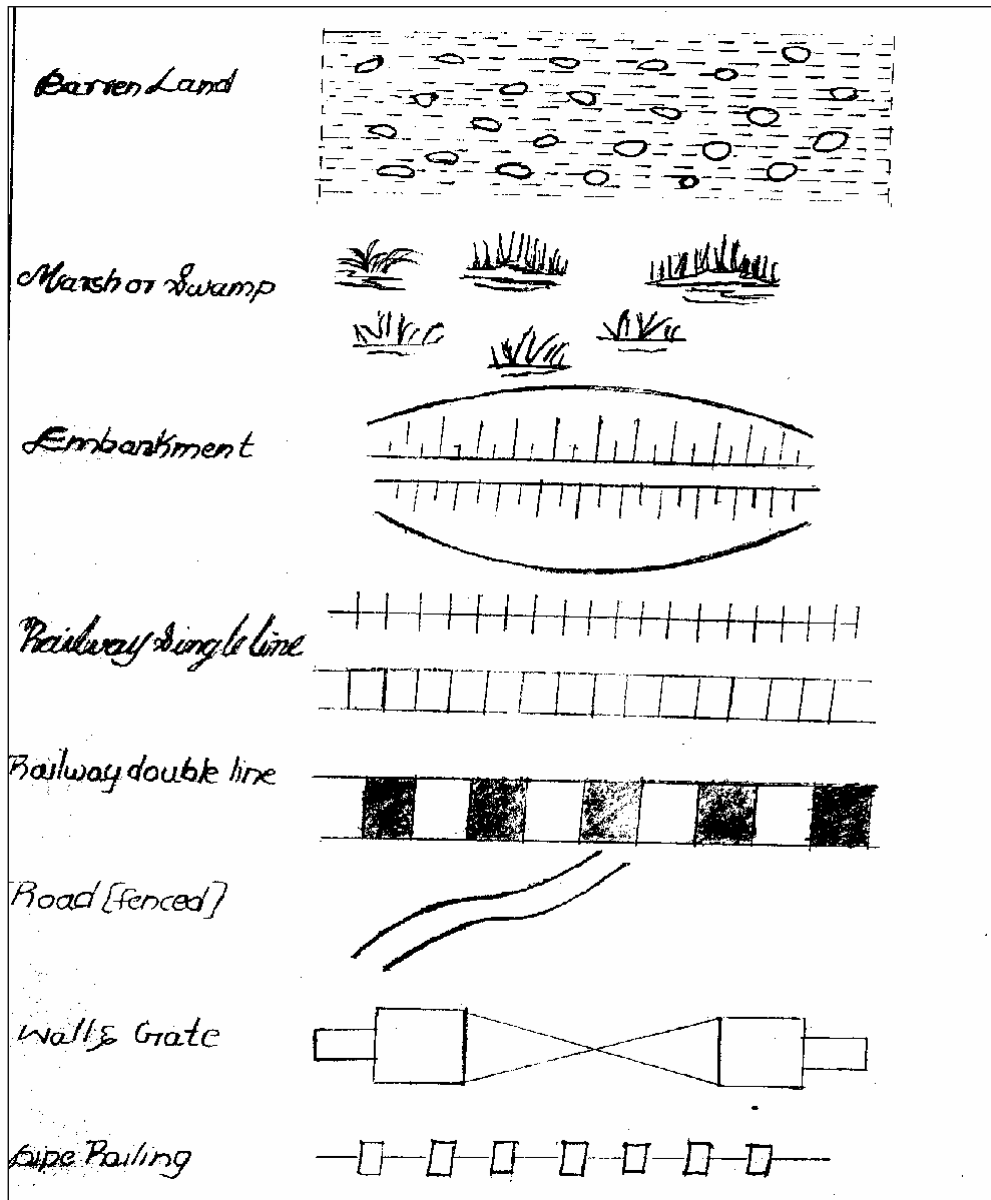 Barren Land
Marsh or Swamp
Embankment
Railway Single line
Railway double line
Road [fenced]
Wall & Gate
pipe Railing